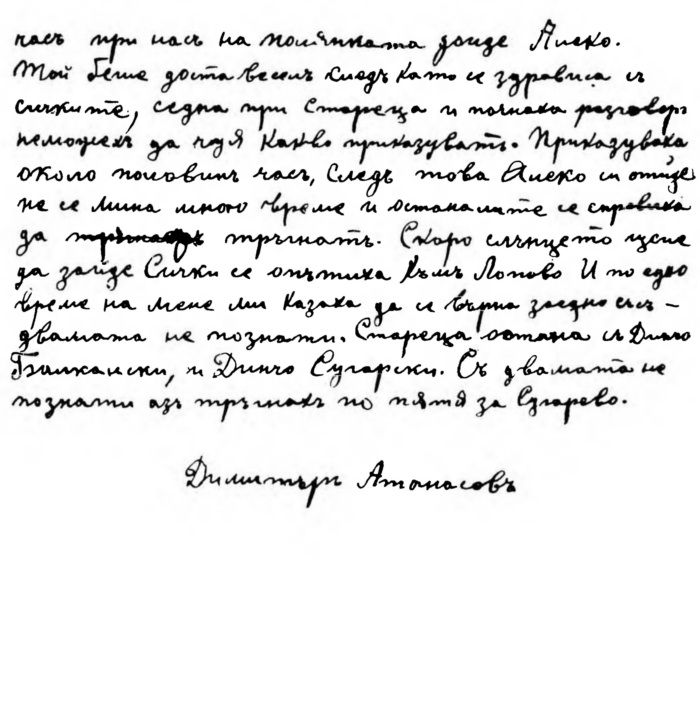 часъ при насъ на полянката дойде Алеко.
Той беше доста веселъ следъ като се здрависа съ
сичките, седна при Стареца и почнаха разговоръ
неможехъ да чуя какво приказуватъ. Приказуваха
около половинъ часъ, следъ това Алеко си отиде
не се мина много време и останалите се справиха
да тръгнатъ. Скоро слънцето щеше
да зайде Сички се опътиха към Попово И по едно
време на мене ми казаха да се върна заедно със –
двамата не познати. Стареца остана съ Динчо
Балкански, и Динчо Сугарски. Съ двамата не
познати азъ тръгнахъ по пътя за Сугарево.
Димитъръ Атанасовъ